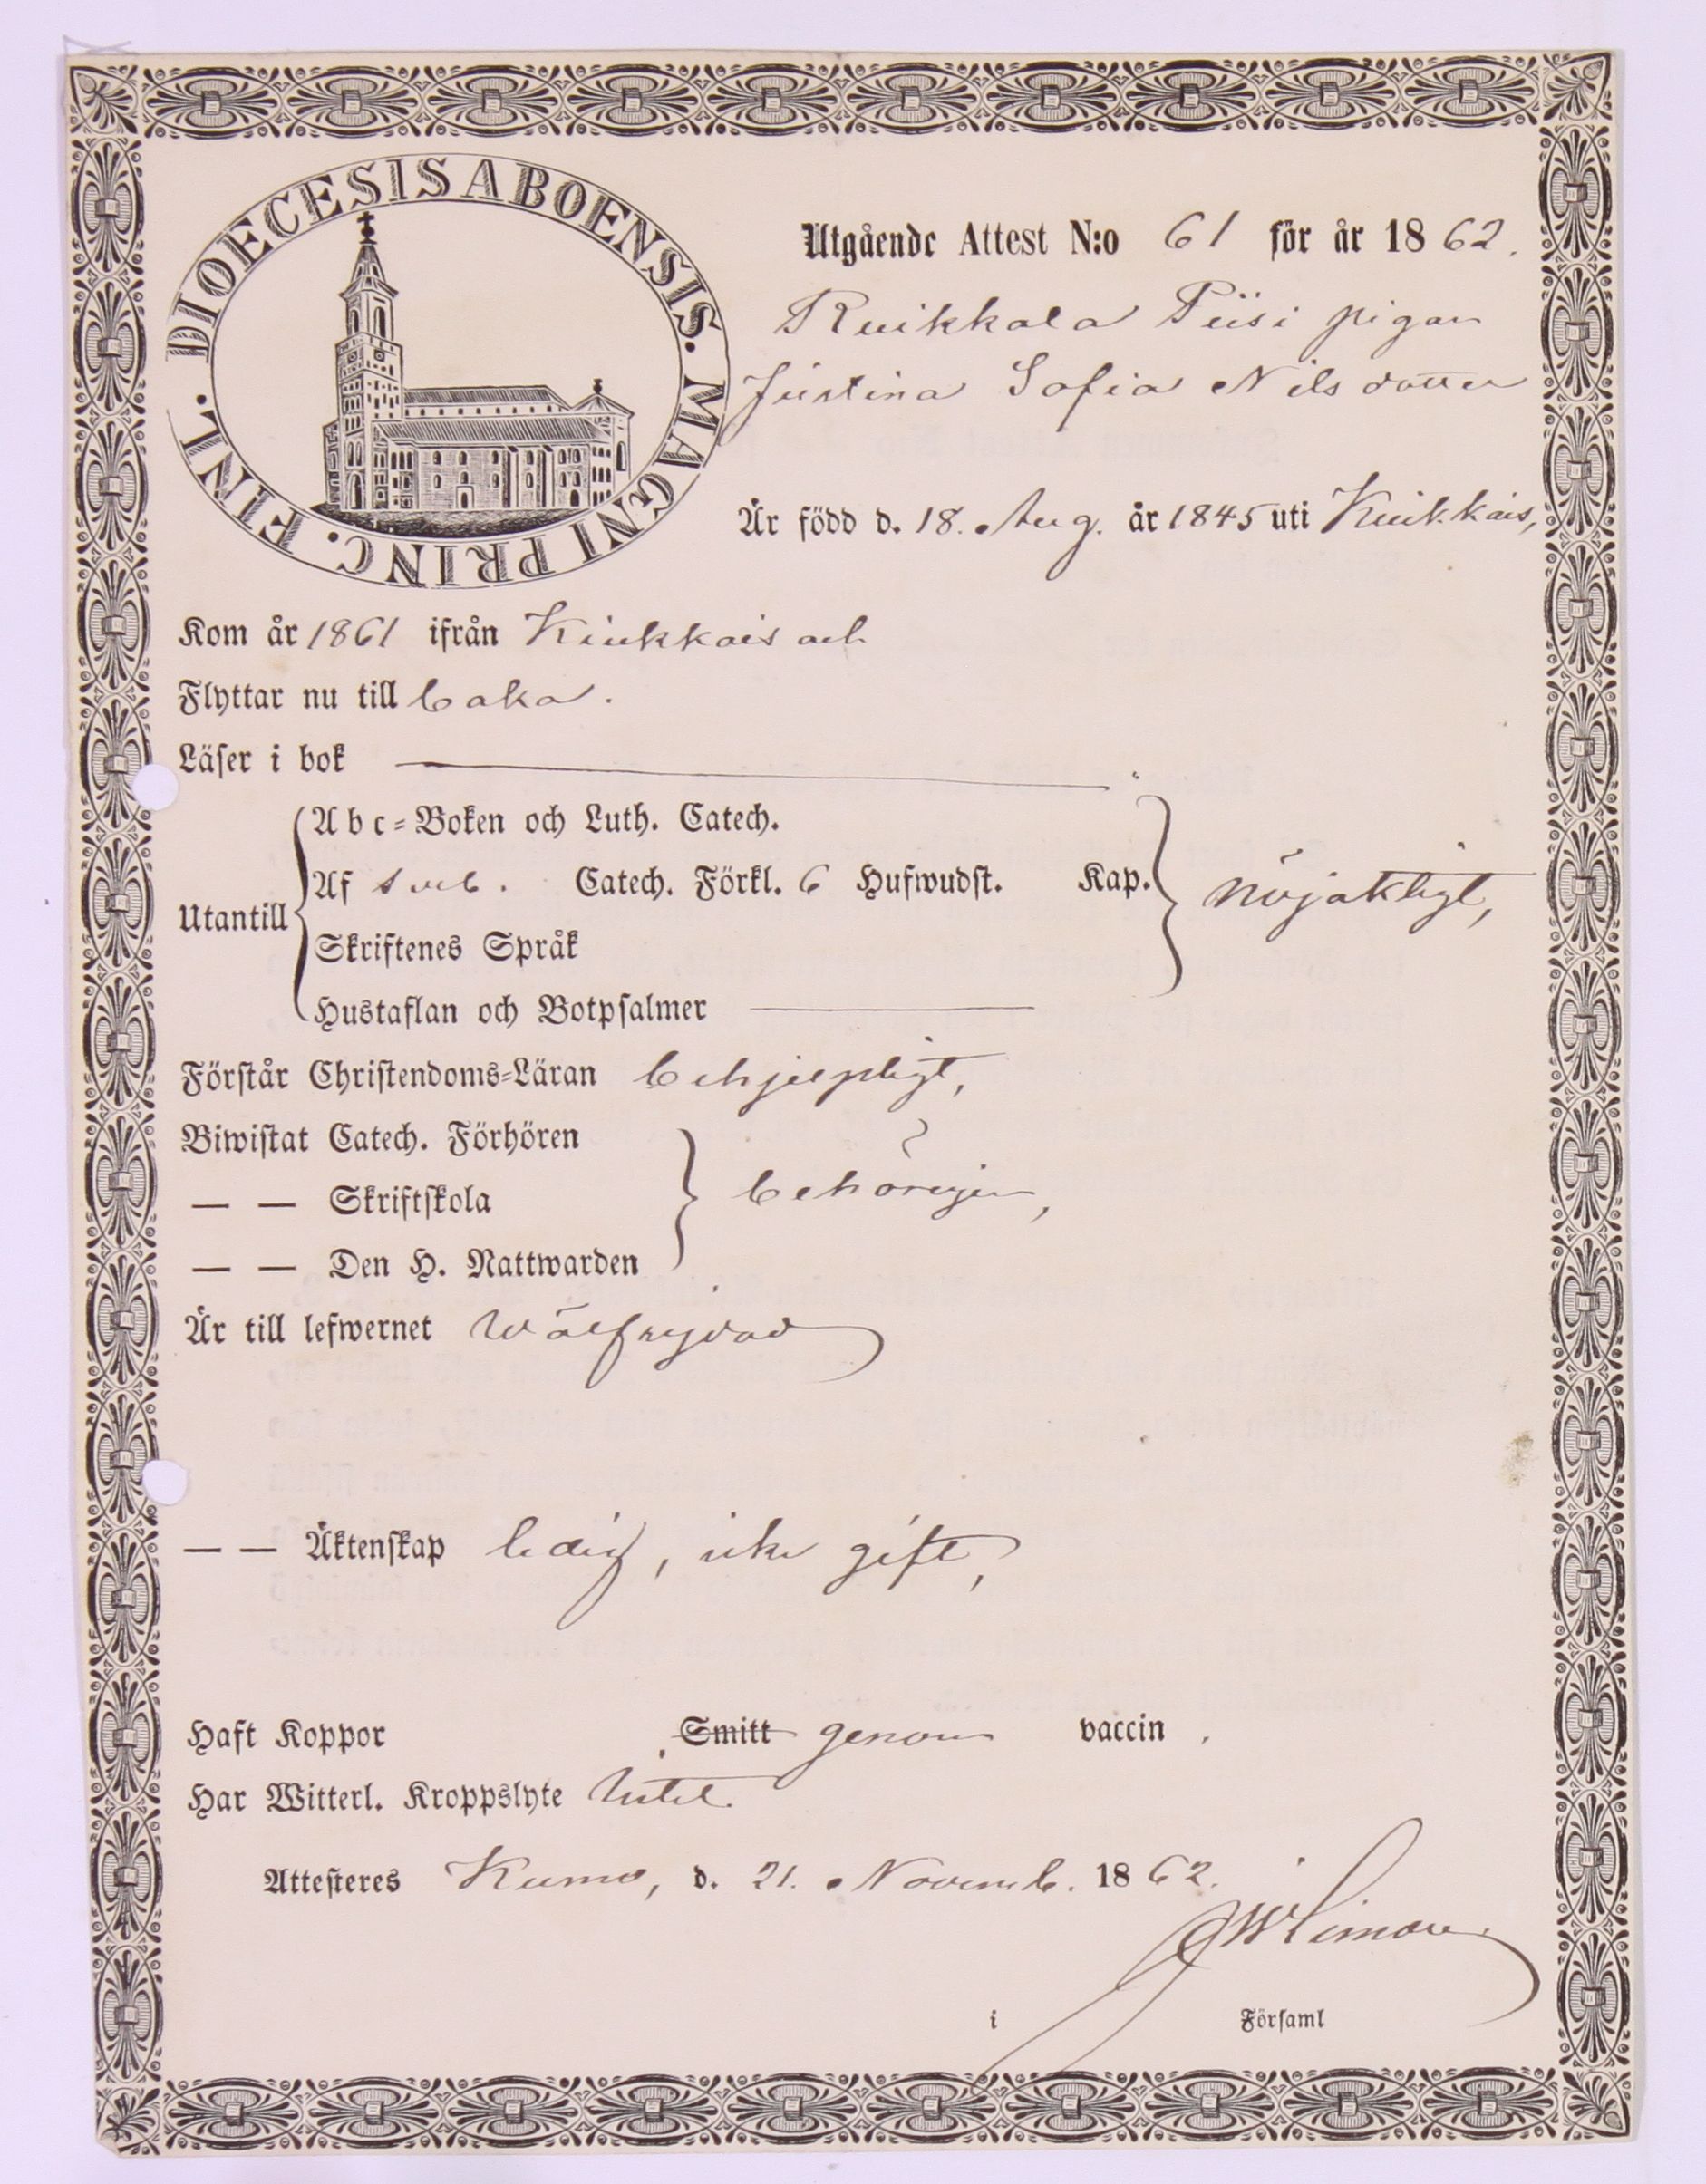 DIOECESIS ABOENSIS. MAGNI PRINC. FINL.
Utgående Attest N:o 61 för år 1862.
Kuikkala Piisi pigan
Justina Sofia Nilsdotter
Är född d. 18. Aug. år 1845 uti Kiukkais,
Kom år 1861 ifrån Kiukkais och
Flyttar nu till
Läser i bok
Abc-Boken och Luth. Catech.
Af Sveb. Catech. Förkl. 6 Hufwudst. Kap.
Utantill nöjaktigt,
Skriftenes Språk
Hustaflan och Botpsalmer
Förstår Christendoms-Läran behjelpligt,
Biwistat Catech. Förhören
— — Skriftskola behörigen,
— — Den H. Nattwarden
Är till lefwernet wälfrejdad
— — Äktenskap ledig, icke gift,
Haft Koppor Smitt genom vaccin.
Har Witterl. Kroppslyte Intet.
Attesteres Kumo, d. 21. Novemb. 1862.
i Församl